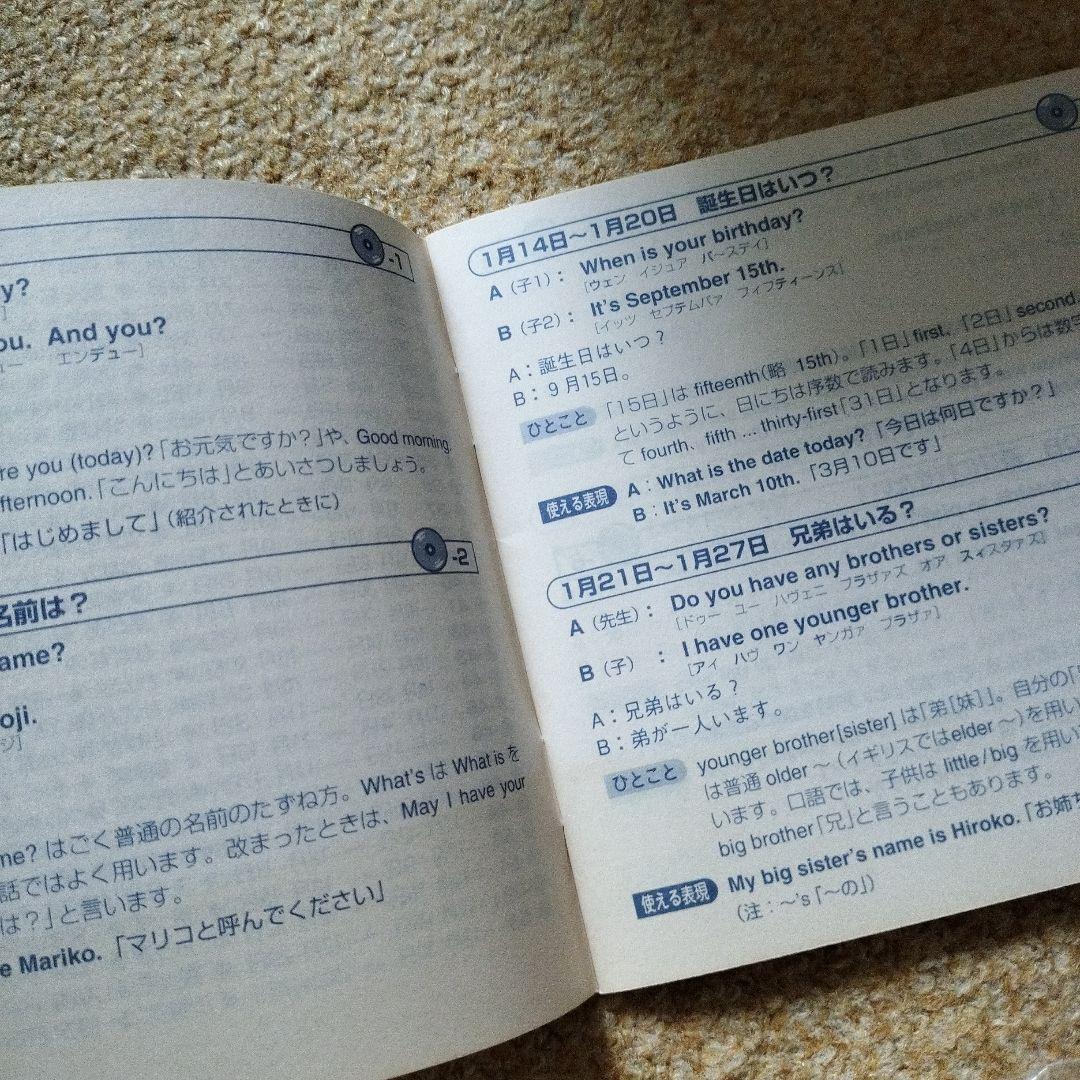 -1
y?
ou. And you?
ュー エンデュー]
re you (today)?「お元気ですか?」や、Good morning.
fternoon.「こんにちは」とあいさつしましょう。
「はじめまして」(紹介されたときに)
-2
名前は?
ame?
oji.
ジ]
me? はごく普通の名前のたずね方。What's は What is を
話ではよく用います。改まったときは、May I have your
は?」と言います。
e Mariko.「マリコと呼んでください」
1月14日～1月20日 誕生日はいつ?
A(子1): When is your birthday?
[ウェン イジュア バースデイ]
B(子2): It's September 15th.
[イッツ セプテムバァ フィフティーンス]
A:誕生日はいつ?
B:9月15日。
ひとこと 「15日」は fifteenth(略 15th)。「1日」first、「2日」second
というように、日にちは序数で読みます。「4日」からは数字
て fourth、fifth … thirty-first「31日」となります。
使える表現 A:What is the date today?「今日は何日ですか?」
B:It's March 10th.「3月10日です」
1月21日～1月27日 兄弟はいる?
A(先生): Do you have any brothers or sisters?
[ドゥー ユー ハヴェニ ブラザァズ オア スィスタァズ]
B(子): I have one younger brother.
[アイ ハヴ ワン ヤンガァ ブラザァ]
A:兄弟はいる?
B:弟が一人います。
ひとこと younger brother[sister] は「弟[妹]」。自分の「
は普通 older ～(イギリスではelder ～)を用い
います。口語では、子供は little/big を用い
big brother「兄」と言うこともあります。
使える表現 My big sister's name is Hiroko.「お姉ち
(注:～'s「～の」)